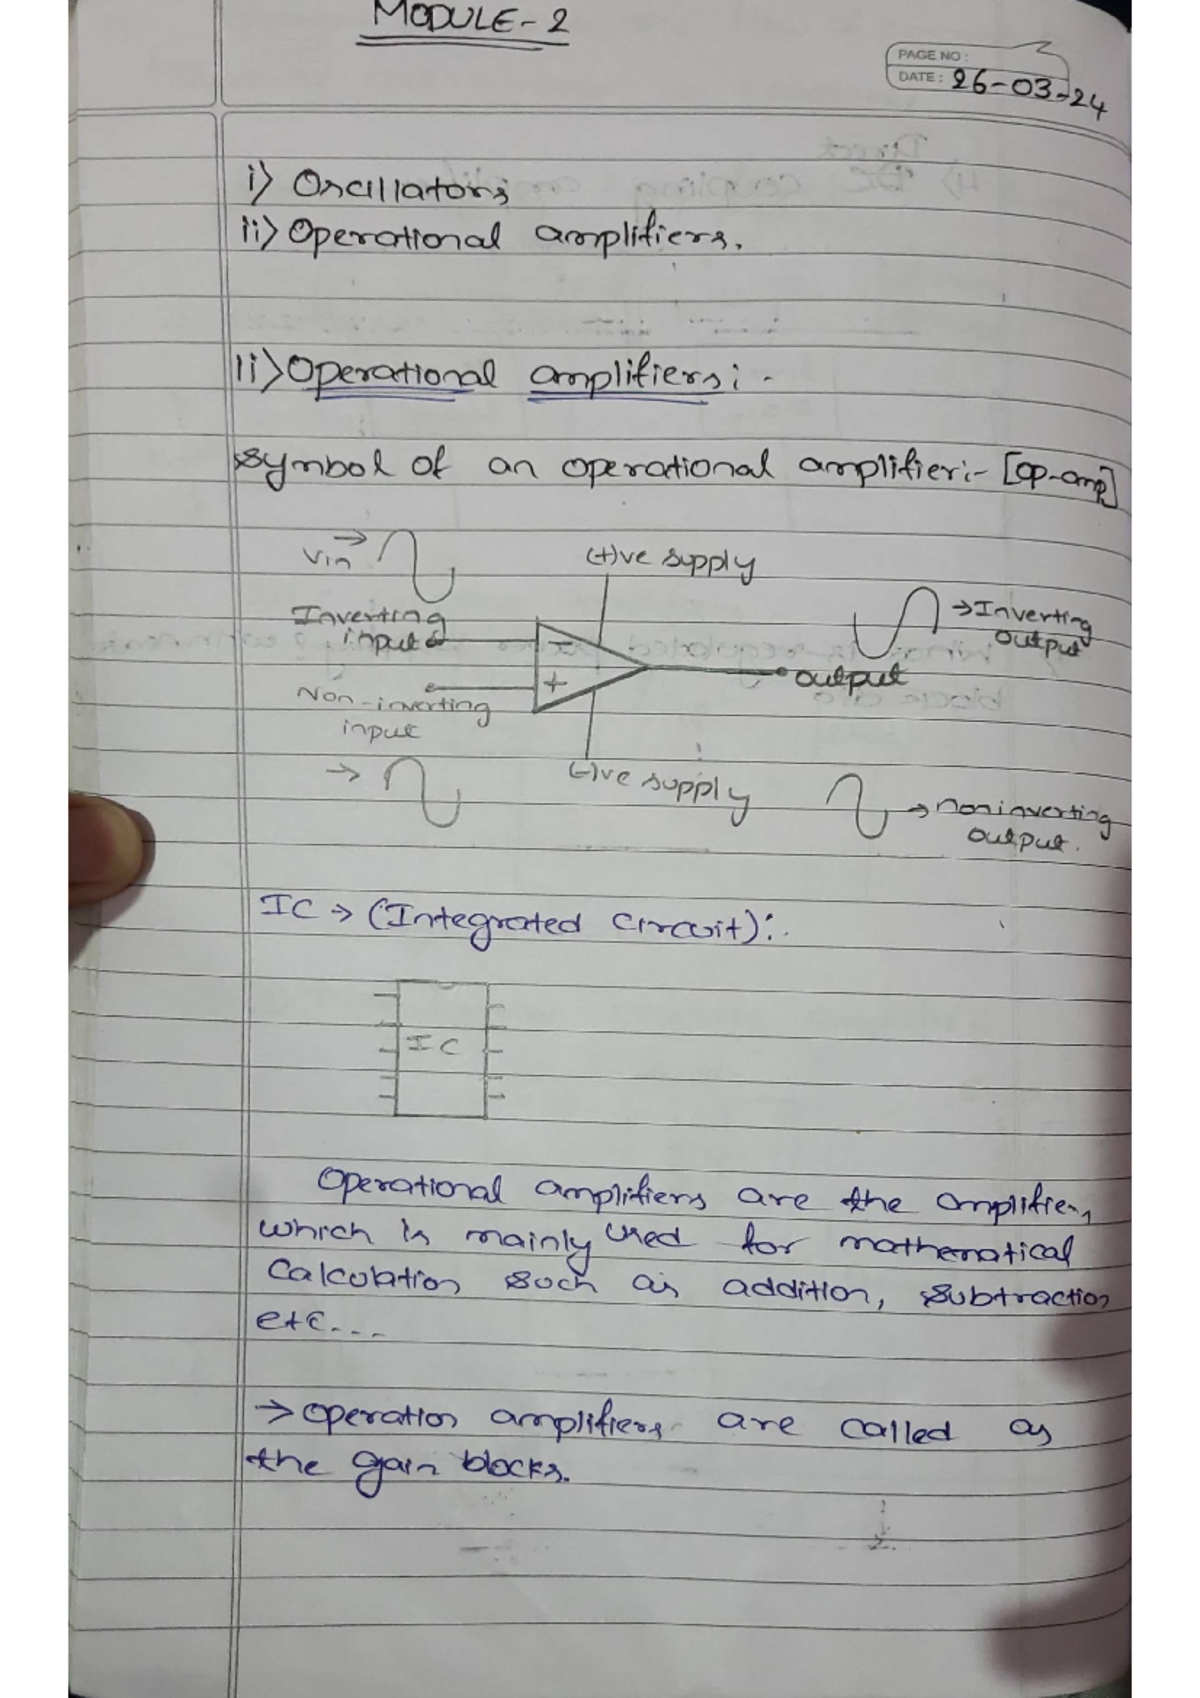 MODULE-2
PAGE NO:
DATE: 26-03-24
i) Oscillators
ii) Operational amplifiers.
ii) Operational amplifiers:-
symbol of an operational amplifier:- [op-amp]
Vin →
(+)ve supply
→ Inverting
output
Inverting
input
−
output
+
Non-inverting
input
→
(-)ve supply
→ noninverting
output.
IC → (Integrated Circuit):-
IC
Operational amplifiers are the amplifiers
which is mainly used for mathematical
Calculation such as addition, subtraction
etc...
→ operation amplifiers are called as
the gain blocks.